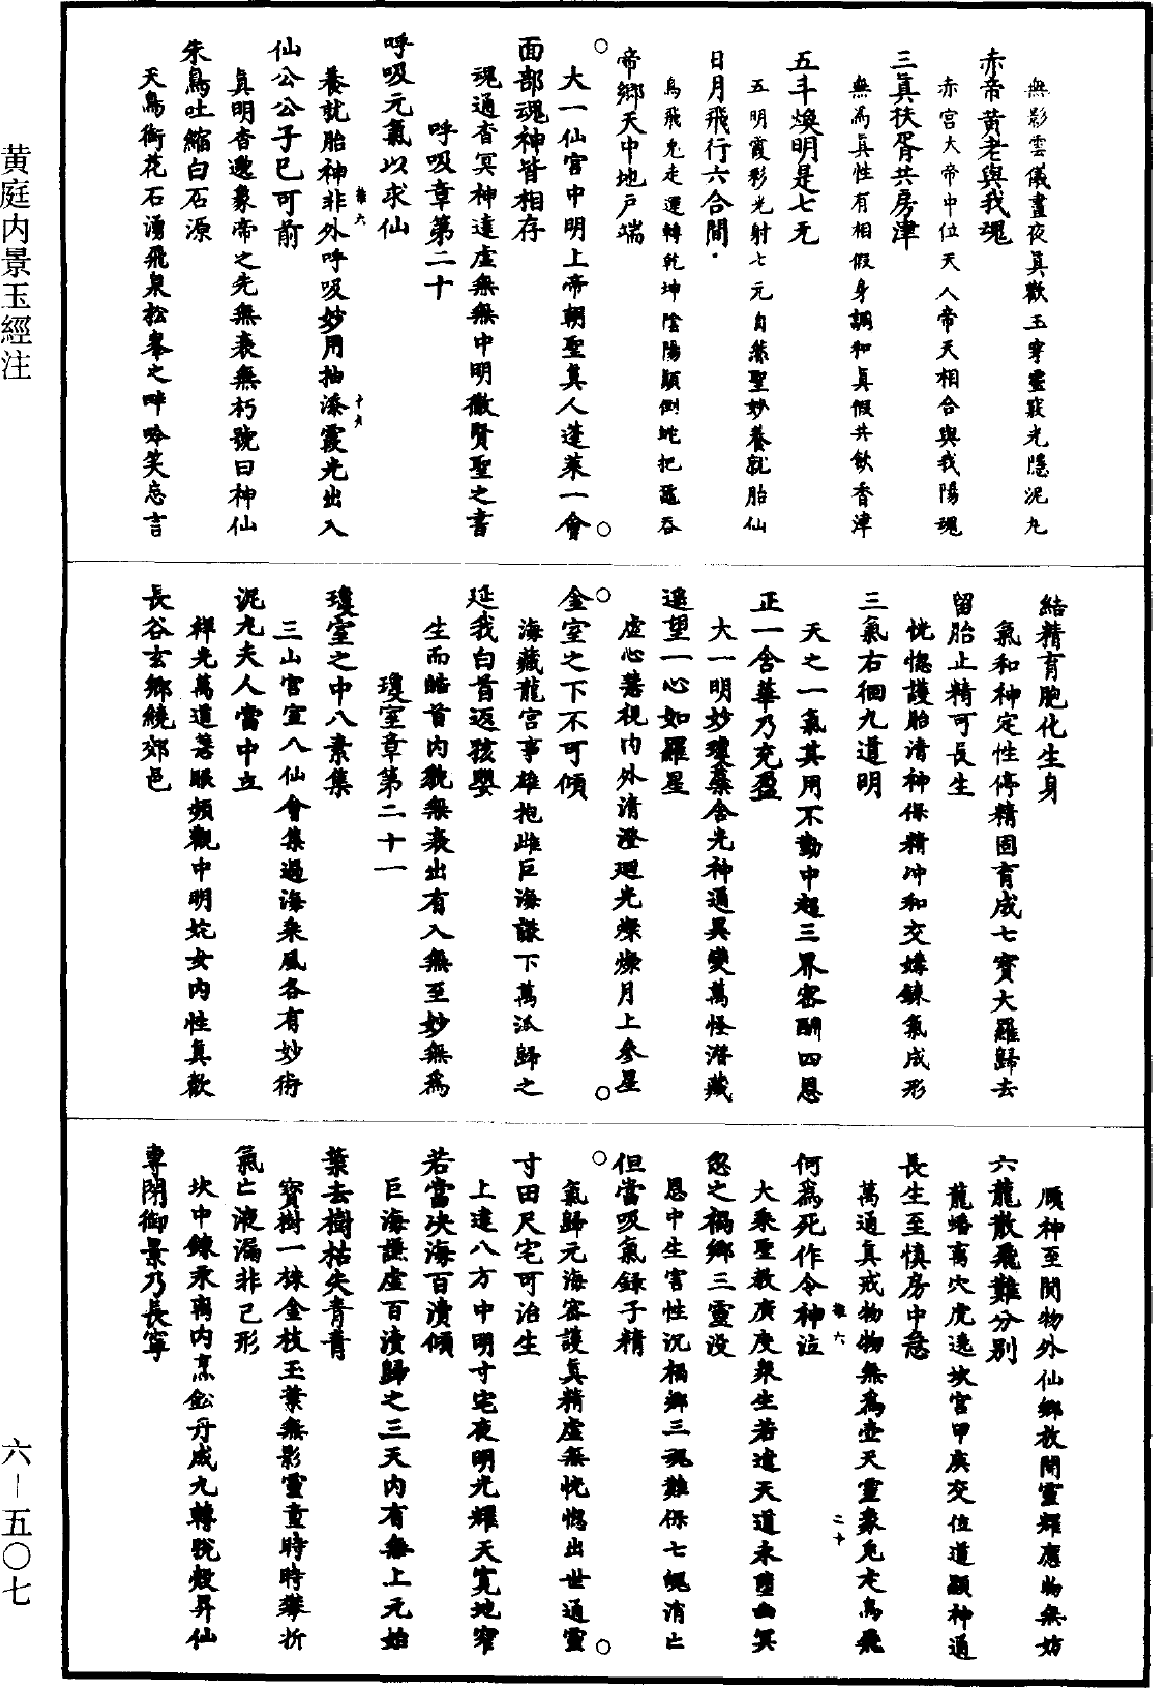 無影雲儀晝夜真歡玉穹靈竅光隱泥九
赤帝黃老與我魂
赤宮大帝中位天人帝天相合與我陽魂
三真扶胥共房津
無為真性有相假身調和真假共飲香津
五斗煥明是七元
五明霞彩光射七元自然聖妙養就胎仙
日月飛行六合間
烏飛兔走運轉乾坤陰陽順倒 把 吞
帝鄉天中地戶端
大一仙宮中明上帝朝聖真人蓬萊一會
面部魂神皆相存
魂通杳冥神達虛無無中明徹賢聖之書
呼吸章第二十
呼吸元氣以求仙
養就胎神非外呼吸妙用抽添霞光出入
仙公公子已可前
真明杳邈象帝之先無衰無朽號曰神仙
朱鳥吐縮白石源
天鳥銜花石湧飛泉松峯之畔吟笑忘言
結精育胞化生身
氣和神定性停精固育成七寶大羅歸去
留胎止精可長生
恍惚護胎清神保精冲和交媾鍊氣成形
三氣右徊九道明
天之一氣其用不勤中超三界密酬四恩
正一含華乃充盈
大一明妙瓊蘂含光神通異變萬怪潛藏
遥望一心如羅星
虛心善視内外清澄廻光爍爍月上參星
金室之下不可傾
海藏龍宮事雄抱雌巨海謙下萬派歸之
延我白首返孩嬰
生而皓首内貌無衰出有入無至妙無為
瓊室章第二十一
瓊室之中八素集
三山宮室八仙會集過海乘風各有妙術
泥九夫人當中立
祥光萬道著眼頻觀中明姹女内性真歡
長谷玄鄉繞郊邑
順神至閒物外仙鄉放閒靈耀應物無妨
六龍散飛難分别
龍蟠离穴虎遶坎宮甲庚交位道顯神通
長生至慎房中急
萬通真戒物物無為壺天靈象兔走烏飛
何為死作令神泣
大乘聖教廣度衆生若違天道永墮幽冥
忽之禍鄉三靈没
恩中生害性沉禍鄉三魂難保七魄消亡
但當吸氣録子精
氣歸元海密護真精虛無恍惚出世通靈
寸田尺宅可治生
上達八方中明寸宅夜明光耀天寬地窄
若當决海百瀆傾
巨海謙虛百瀆歸之三天内有無上元始
葉去樹枯失青青
寶樹一株金枝玉葉無影靈童時時攀折
氣亡液漏非己形
坎中鍊汞离内烹鈆丹成九轉脱殼昇仙
專閉御景乃長寧
黄庭内景玉經注
六－五〇七